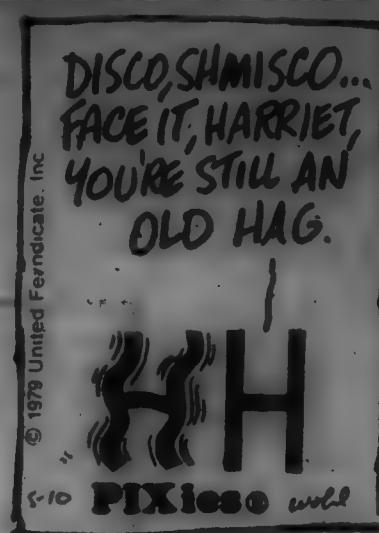 DISCO, SHMISCO...
FACE IT, HARRIET,
YOU'RE STILL AN
OLD HAG.
© 1979 United Feyndicate, Inc
H H
5-10 PIXies wohl